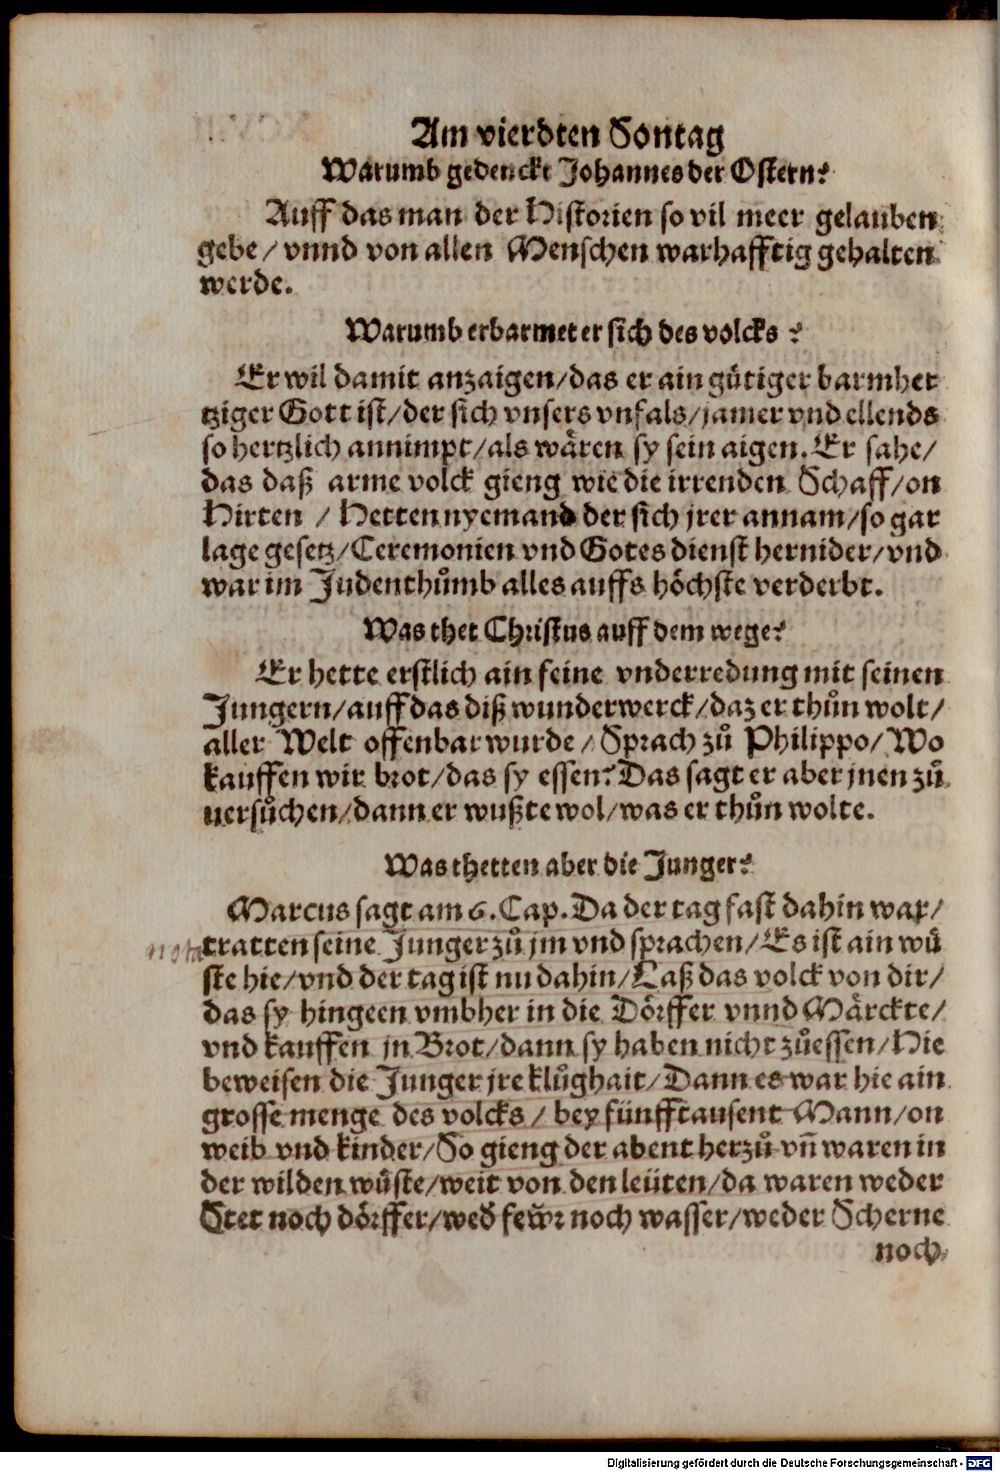 Am vierdten Sontag
Warumb gedenckt Johannes der Ostern?
Auff das man der Historien so vil meer gelauben
gebe/ vnnd von allen Menschen warhafftig gehalten
werde.
Warumb erbarmet er sich des volcks ?
Er wil damit anzaigen/das er ain gůtiger barmher
tziger Gott ist/der sich vnsers vnfals/jamer vnd ellends
so hertzlich annimpt/als wåren sy sein aigen. Er sahe/
das daß arme volck gieng wie die irrenden Schaff/on
Hirten / Hetten nyemand der sich jrer annam/so gar
lage gesetz/Ceremonien vnd Gotes dienst hernider/vnd
war im Judenthůmb alles auffs höchste verderbt.
Was thet Christus auff dem wege?
Er hette erstlich ain feine vnderredung mit seinen
Jungern/auff das diß wunderwerck/daz er thůn wolt/
aller Welt offenbar wurde/ Sprach zů Philippo/ Wo
kauffen wir brot/das sy essen? Das sagt er aber jnen zů
uersůchen/dann er wußte wol/was er thůn wolte.
Was thetten aber die Junger?
Marcus sagt am 6. Cap. Da der tag fast dahin war/
nota
tratten seine Junger zů jm vnd sprachen/Es ist ain wů
ste hie/vnd der tag ist nu dahin/Laß das volck von dir/
das sy hingeen vmbher in die Dörffer vnnd Mårckte/
vnd kauffen jn Brot/dann sy haben nicht zůessen/Hie
beweisen die Junger jre klůghait/Dann es war hie ain
grosse menge des volcks/ bey fünfftausent Mann/on
weib vnd kinder/So gieng der abent herzů vn̄ waren in
der wilden wůste/weit von den leüten/da waren weder
Stet noch dörffer/wed̕ few̃r noch wasser/weder Scherne
noch
Digitalisierung gefördert durch die Deutsche Forschungsgemeinschaft - DFG